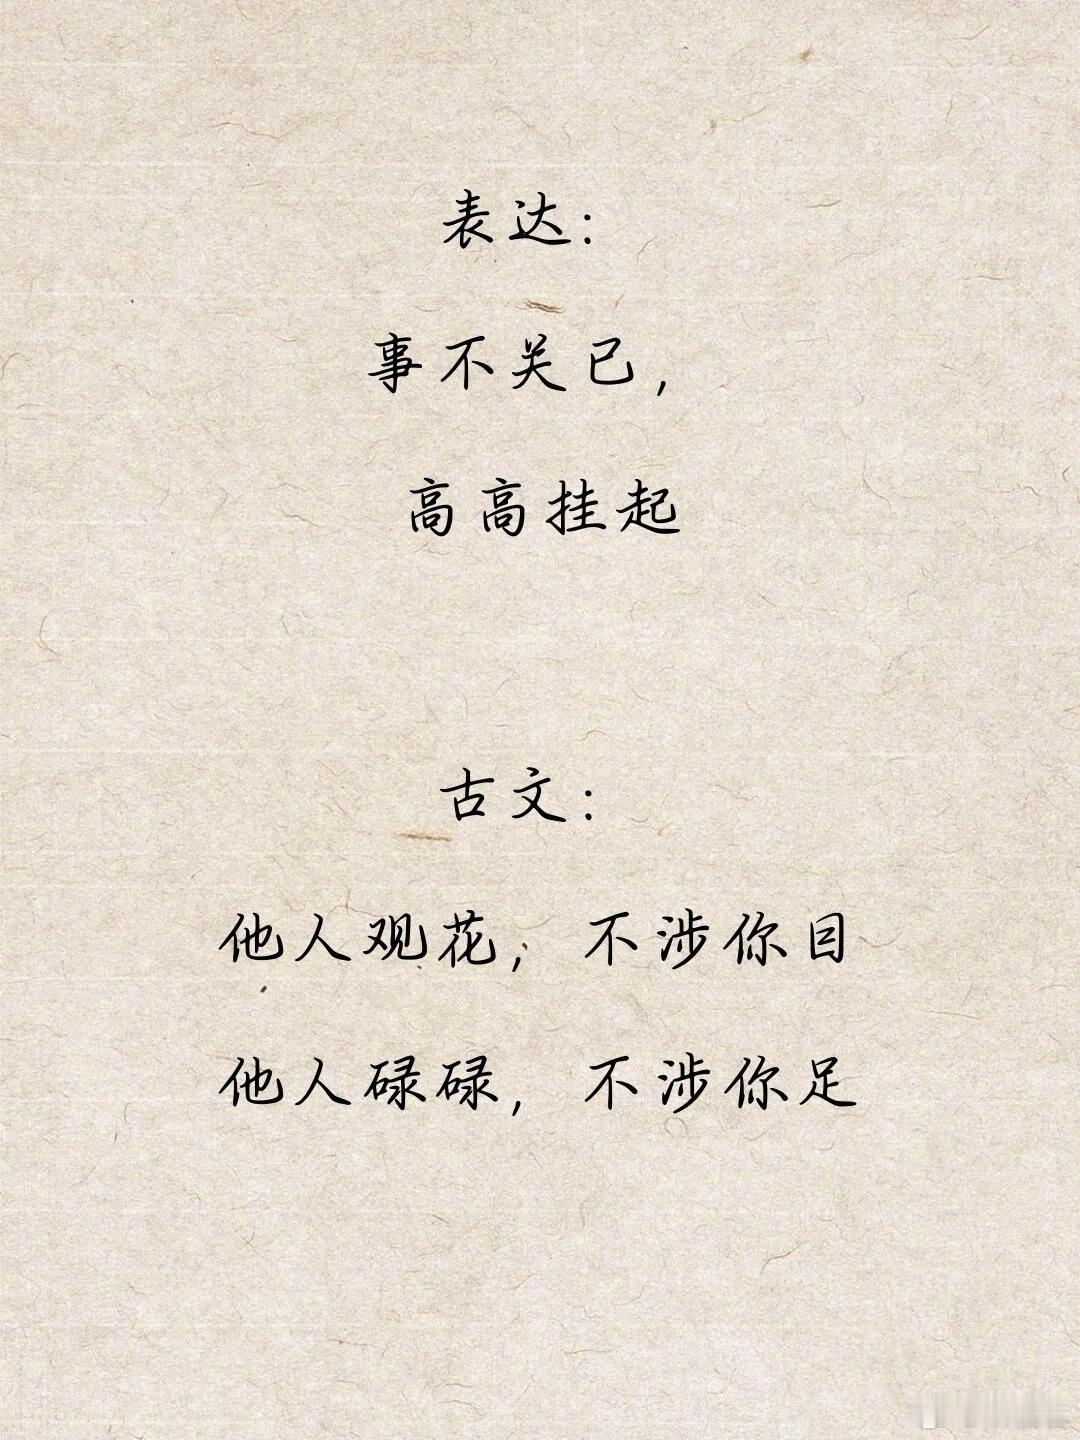 表达：
事不关己，
高高挂起
古文：
他人观花，不涉你目
他人碌碌，不涉你足